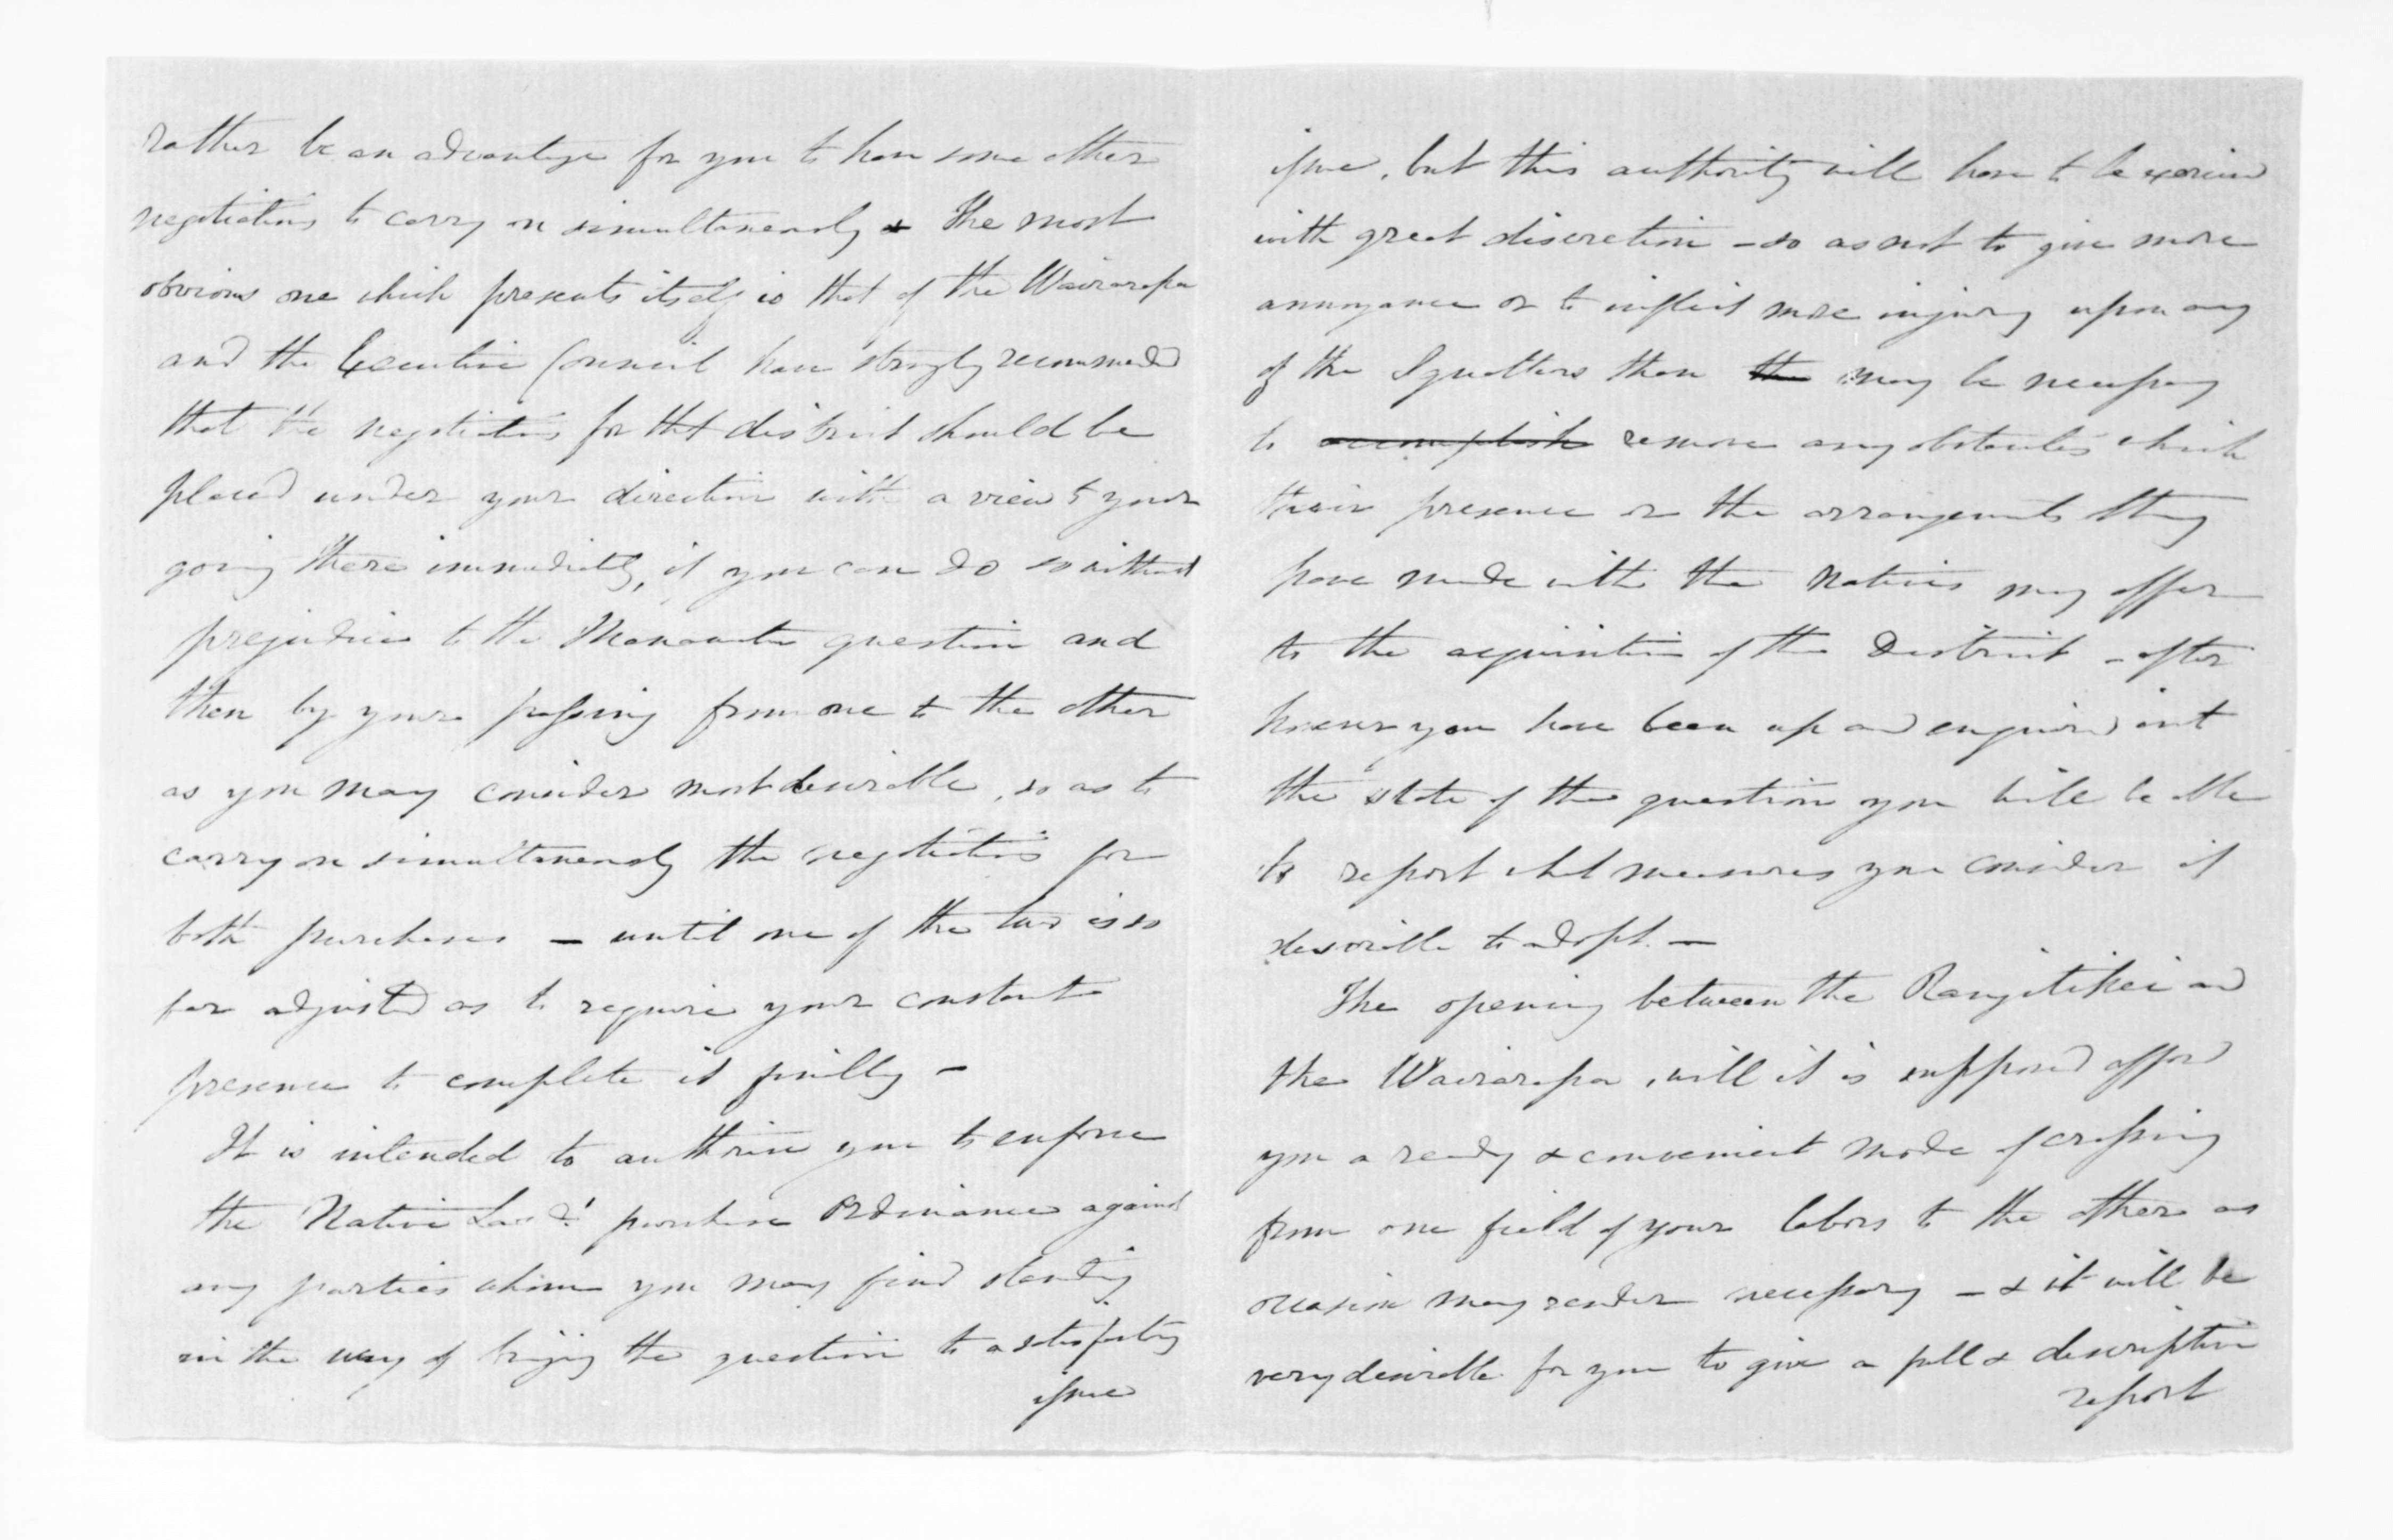 rather be an advantage for you to have some other
negotiations to carry on simultaneously & the most
obvious one which presents itself is that of the Wairarapa
and the Executive Council have strongly recommended
that the negotiations for that district should be
placed under your direction with a view to your
going there immediately, if you can do so without
prejudice to the Manawatu question and
then by your passing from one to the other
as you may consider most desirable, so as to
carry on simultaneously the negotiations for
both purchases — until one of the two is so
far adjusted as to require your constant
presence to complete it finally —
It is intended to authorise you to enforce
the Native Land purchase Ordinance against
any parties whom you may find standing
in the way of bringing the question to a satisfactory
issue
issue, but this authority will have to be exercised
with great discretion - so as not to give more
annoyance or to inflict more injury upon any
of the Squatters than the may be necessary
to accomplish remove any obstacles which
their presence or the arrangements they
have made with the Natives may offer
to the acquisition of the District - after
however you have been up and enquired into
the state of the question you will be able
to report what measures you consider it
desirable to adopt. —
The opening between the Rangitikei and
the Wairarapa, will it is supposed afford
you a ready & convenient mode of crossing
from one field of your labors to the other as
occasion may render necessary — & it will be
very desirable for you to give a full & descriptive
report